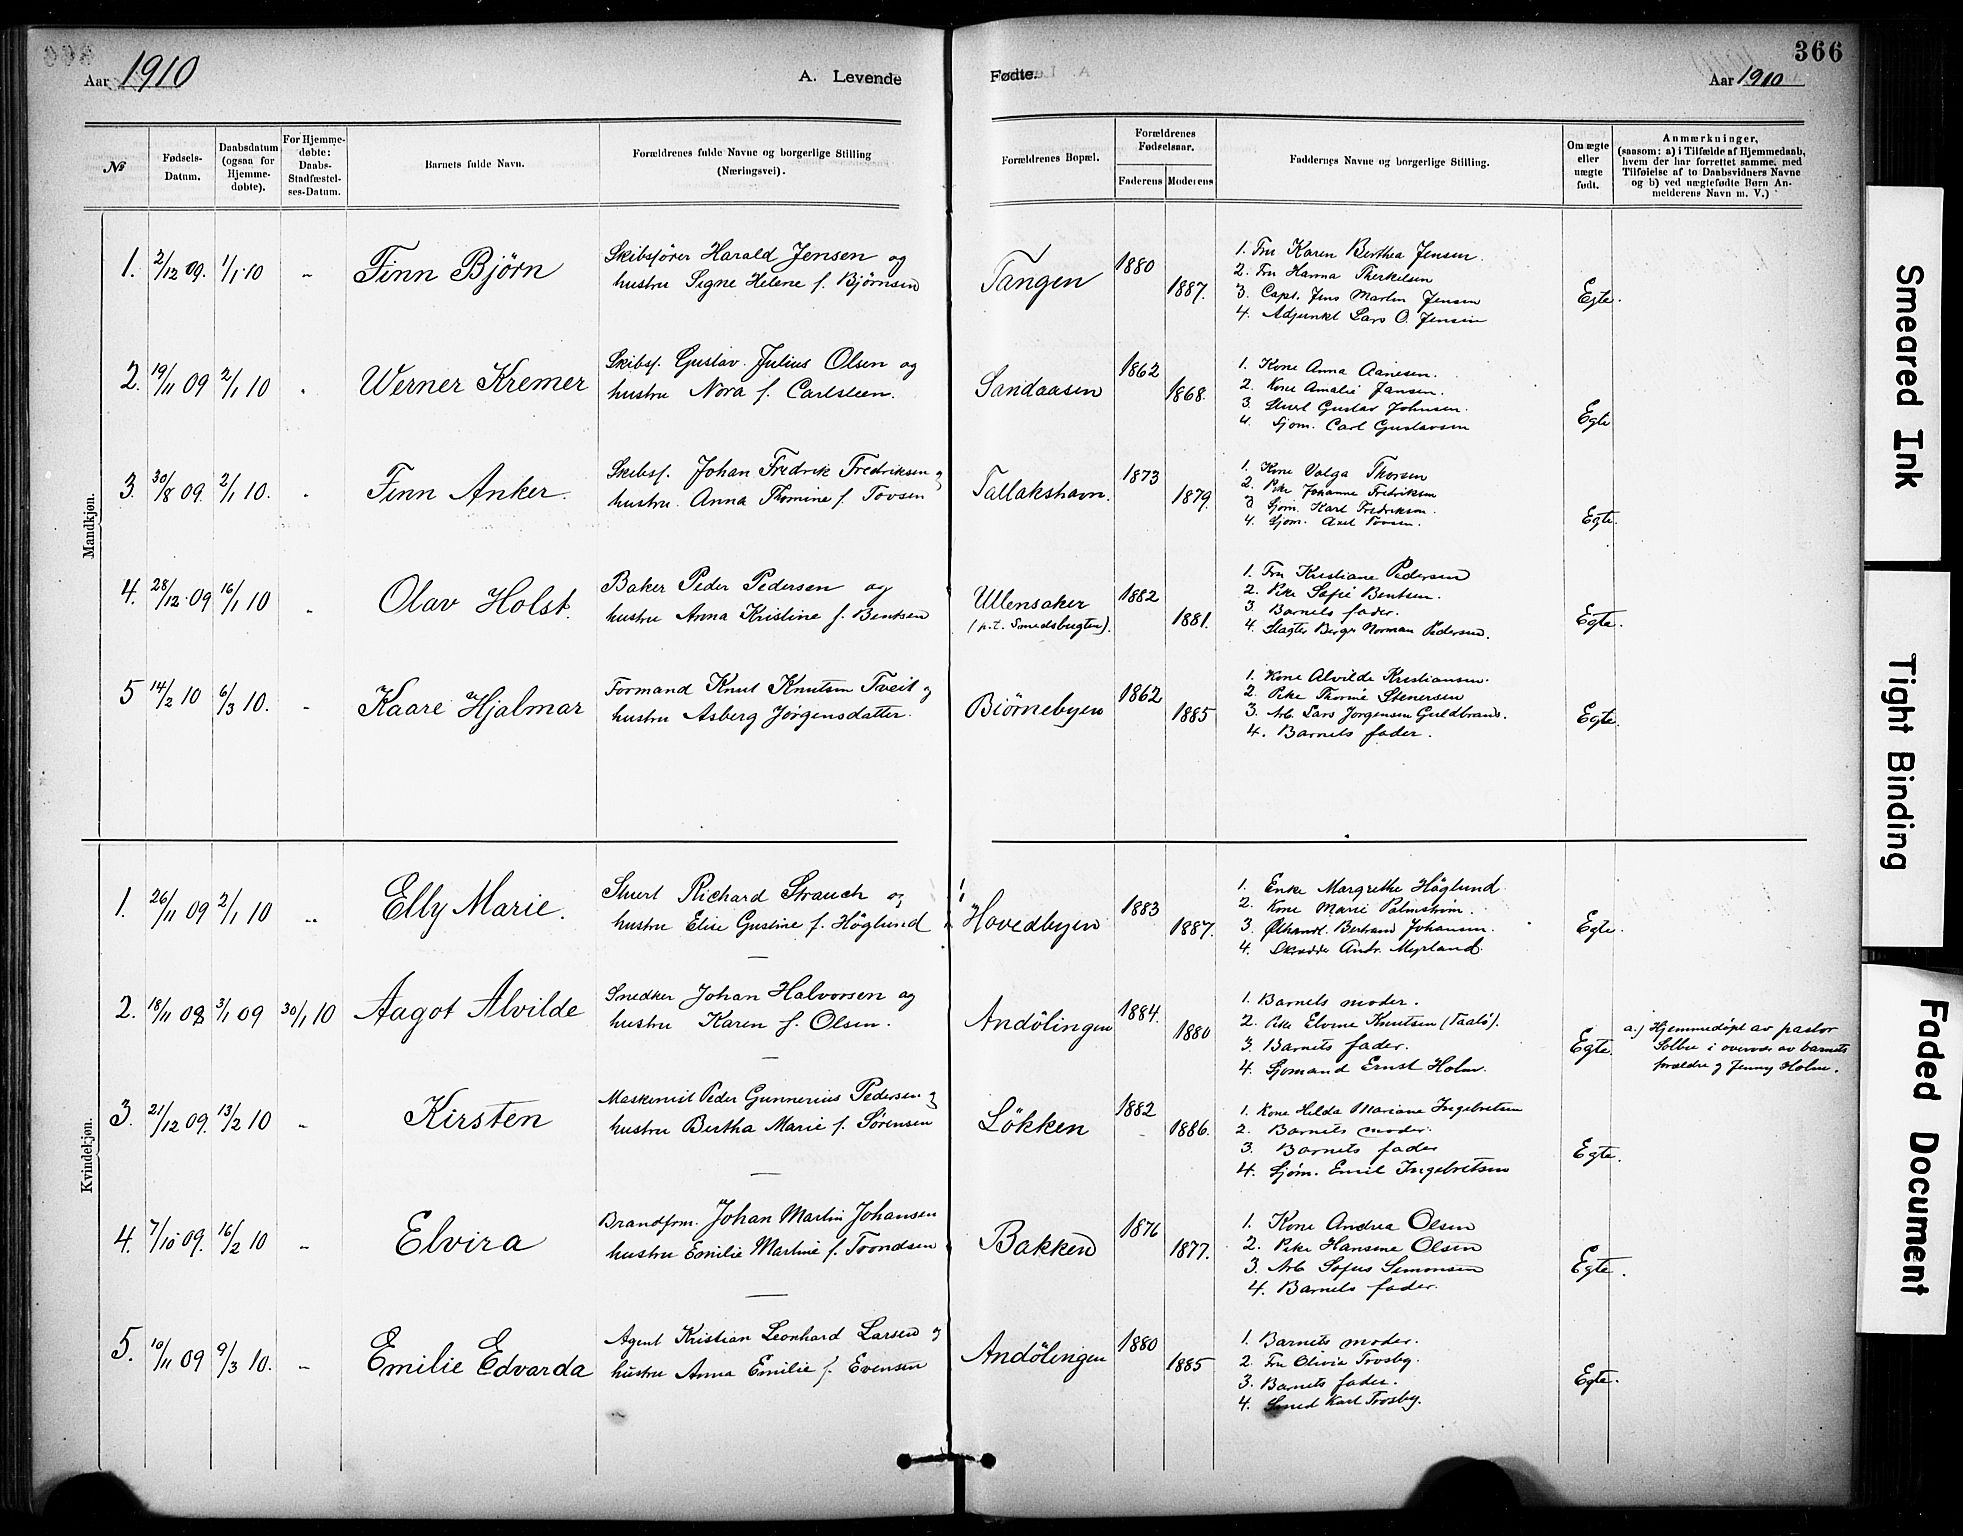 Aar 1910
A. Levende
Fødte.
Aar 1910
366
№
Fødsels-
Datum.
Daabsdatum
(ogsaa for
Hjemme-
døbte).
For Hjemme-
døbte:
Daabs-
Stadfæstel-
ses-Datum.
Barnets fulde Navn.
Forældrenes fulde Navne og borgerlige Stilling
(Næringsvei).
Forældrenes Bopæl.
Forældrenes
Fødselsaar.
Faderens Moderens
Faddernes Navne og borgerlige Stilling.
Om ægte
eller
uægte
født.
Anmærkninger,
(saasom: a) i Tilfælde af Hjemmedaab,
hvem der har forrettet samme, med
Tilføielse af to Daabsvidners Navne
og b) ved uægtefødte Børn An-
melderens Navn m. V.)
Mandkjøn.
1. 2/12 09. 1/1 10 " Finn Björn
Skibsfører Harald Jensen og
hustru Signe Helene f. Björnsen
Tangen 1880 1887.
1. Fru Karen Berthea Jensen.
2. Fru Hanna Therkelsen
3. Capt. Jens Martin Jensen
4. Adjunkt Lars O. Jensen
Egte.
2. 19/11 09 2/1 10 " Werner Kremer
Skibsf. Gustav Julius Olsen og
hustru Nora f. Carlsteen.
Sandaasen 1862 1868.
1. Kone Anna Aanesen.
2. Kone Amalie Jansen.
3. Stuert Gustav Johnsen.
4. Sjøm. Carl Gustavsen
Egte
3. 30/8 09. 2/1 10. " Finn Anker.
Skibsf. Johan Fredrik Fredriksen og
hustru Anna Thomine f. Tovsen
Tallakshavn. 1873 1879.
1. Kone Valga Thorsen
2. Pike Johanne Fredriksen
3. Sjøm. Karl Fredriksen.
4. Sjøm. Axel Tovsen.
Egte.
4. 28/12 09 16/1 10 " Olav Holst.
Baker Peder Pedersen og
hustru Anna Kristine f. Bentsen
Ullensaker
(p.t. Smedsbugten).
1882 1881.
1. Fru Kristiane Pedersen
2. Pike Sofie Bentsen.
3. Barnets fader.
4. Slagter Berger Norman Pedersen.
Egte.
5 14/2 10 6/3 10. " Kaare Hjalmar
Formand Knut Knutsen Tveit og
hustru Asberg Jörgensdatter.
Biörnebyen 1862 1885
1. Kone Alvilde Kristiansen.
2. Pike Thomie Stenersen
3. Arb. Lars Jorgensen Guldbrand.
4. Barnets fader.
Egte.
Kvindekjøn.
1. 26/11 09 2/1 10 " Elly Marie.
Stuert Richard Strauch og
hustru Elise Gustine f. Höglund
Hovedbyen 1883 1887.
1. Enke Margrethe Höglund
2. Kone Marie Palmstrøm.
3. Ølhandl. Bertrand Johansen.
4. Skrædder Andr. Myrland.
Egte.
2. 18/11 08 3/1 09 30/1 10 Aagot Alvilde
Snedker Johan Halvorsen og
hustru Karen f. Olsen.
Andölingen 1884. 1880
1. Barnets moder.
2. Pike Elvine Knutsen (Taalö).
3. Barnets fader.
4. Sjømand Ernst Holm.
Egte.
a.) Hjemmedøpt av pastor
Solbu i overvær av barnets
forældre og Jenny Holm.
3. 21/12 09. 13/2 10 " Kirsten
Maskinist Peder Gunnerius Pedersen og
hustru Bertha Marie f. Sörensen
Lökken 1882 1886.
1. Kone Hilda Mariane Ingebretsen
2. Barnets moder.
3. Barnets fader
4. Sjøm. Emil Ingebretsen
Egte.
4. 7/10 09. 16/2 10 " Elvira
Brandfm. Johan Martin Johansen
hustru Emilie Martine f. Trondsen
Bakken 1876 1877.
1. Kone Andrea Olsen
2. Pike Hansine Olsen
3. Arb. Sofus Simonsen
4. Barnets fader.
Egte.
5. 10/11 09 9/3 10. " Emilie Edvarda
Agent Kristian Leonhard Larsen og
hustru Anna Emilie f. Evensen
Andölingen 1880 1885
1. Barnets moder.
2. Fru Olivia Trosby.
3. Barnets fader.
4. Smed Karl Trosby.
Egte.
Smeared Ink
Tight Binding
Faded Document